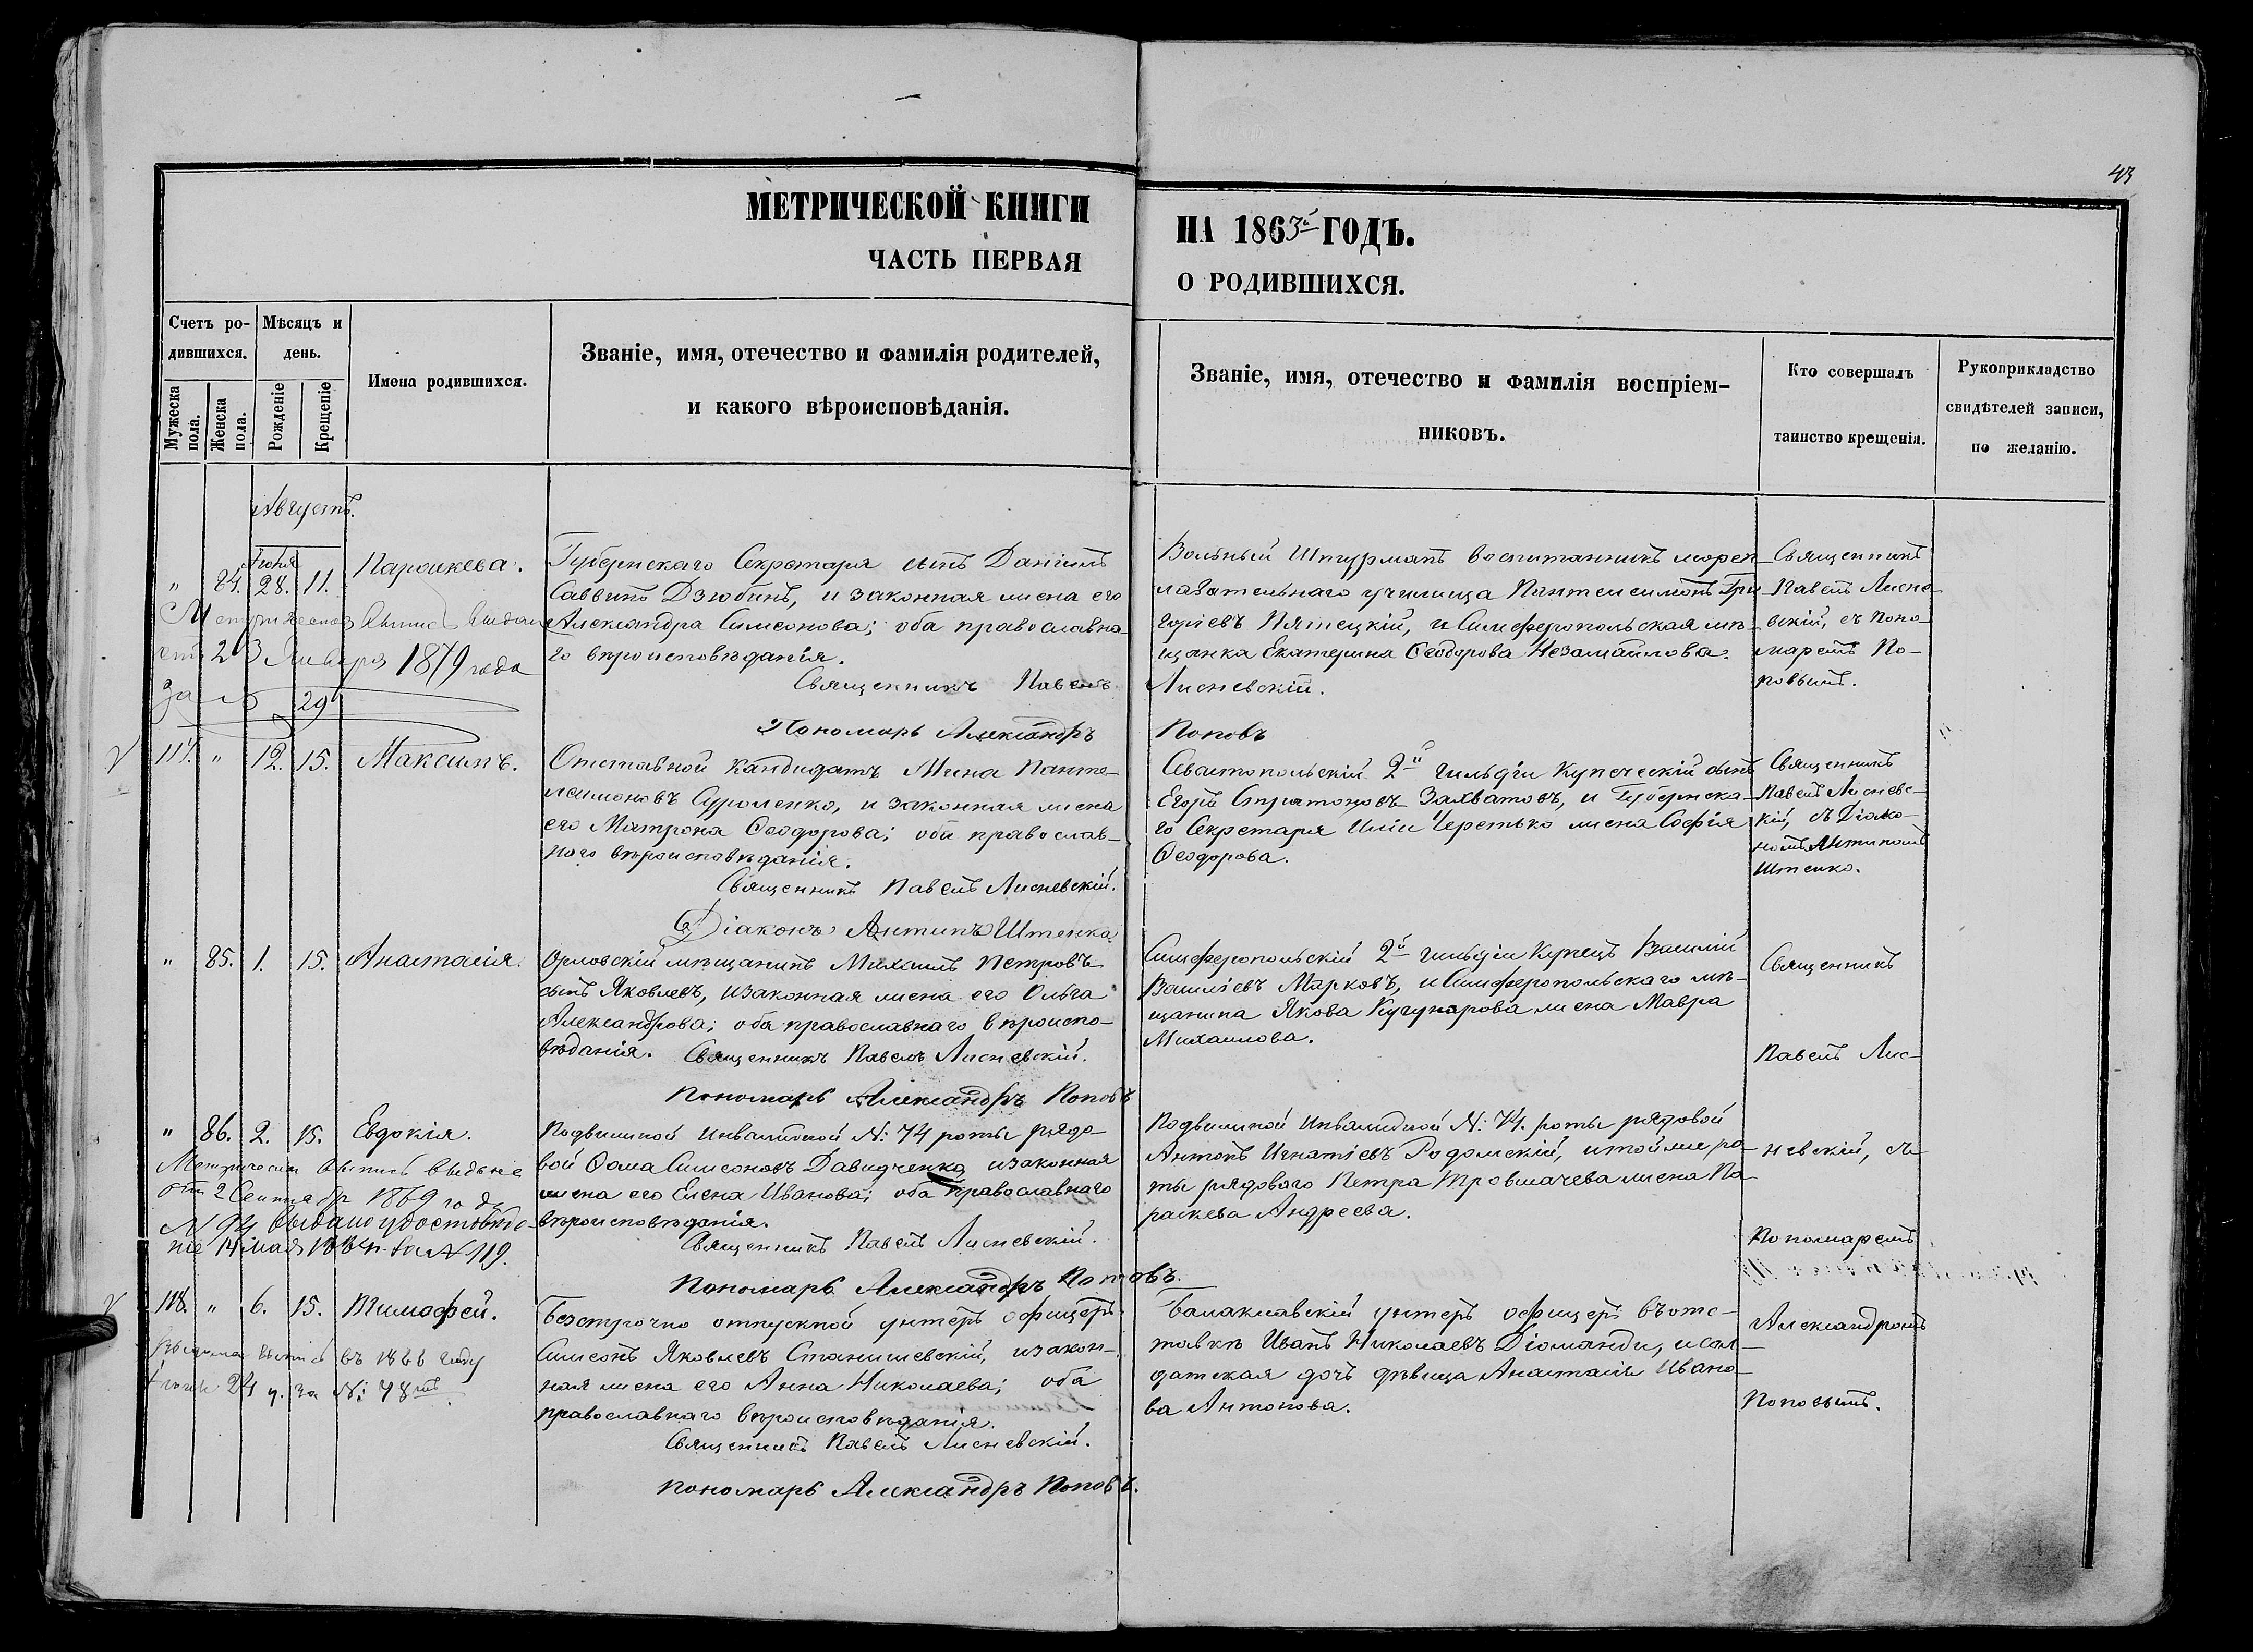 43
МЕТРИЧЕСКОЙ КНИГИ
НА 1863й ГОДЪ.
ЧАСТЬ ПЕРВАЯ
О РОДИВШИХСЯ.
Счетъ ро-
дившихся.
Мужеска пола.
Женска пола.
Мѣсяцъ и
день.
Рожденіе
Крещеніе
Имена родившихся.
Званіе, имя, отечество и фамилія родителей,
и какого вѣроисповѣданія.
Званіе, имя, отечество и фамилія воспріем-
никовъ.
Кто совершалъ
таинство крещенія.
Рукоприкладство
свидѣтелей записи,
по желанію.
Августъ.
" 84. Іюня 28. 11. Параскева.
Губернскаго Секретаря сынъ Даніилъ
Саввинъ Дзюбинъ, и законная жена его
Александра Симеонова; оба православна-
го вѣроисповѣданія.
Священникъ Павелъ Лисневскій.
Пономарь Александръ Поповъ
Вольный Штурманъ воспитанникъ мореп-
лавательнаго училища Пантелеимонъ Гри-
горіевъ Пятецкій, и Симферопольская мѣ-
щанка Екатерина Ѳеодорова Незамайлова.
Священникъ
Павелъ Лисне-
вскій, съ Поно-
маремъ По-
повымъ.
Метрическая выпись выдана
23 Января 1879 года
за № 29
117. " 12. 15. Максимъ.
Отставной Кандидатъ Мина Панте-
леимоновъ Суроленко, и законная жена
его Матрона Ѳеодорова; оба православ-
наго вѣроисповѣданія.
Священникъ Павелъ Лисневскій.
Діаконъ Антипъ Штенко
Севастопольскій 2й гильдіи Купеческій сынъ
Егоръ Спиртоновъ Захватовъ, и Губернска-
го Секретаря Иліи Черетько жена Софія
Ѳеодорова.
Священникъ
Павелъ Лисневс-
кій, съ Діако-
номъ Антипомъ
Штенко.
" 85. 1. 15. Анастасія.
Орловскій мѣщанинъ Михаилъ Петровъ
сынъ Яковлевъ, и законная жена его Ольга
Александрова; оба православнаго вѣроиспо-
вѣданія. Священникъ Павелъ Лисневскій.
Пономарь Александръ Поповъ
Симферопольскій 2й гильдіи Купецъ Василій
Василіевъ Марковъ, и Симферопольскаго мѣ-
щанина Якова Кугунарова жена Мавра
Михаилова.
Священникъ
Павелъ Лис-
" 86. 2. 15. Евдокія.
Подвижной инвалидной №: 74 роты рядо-
вой Ѳома Симеоновъ Давидченко и законная
жена его Елена Иванова; оба православнаго
вѣроисповѣданія.
Священникъ Павелъ Лисневскій.
Пономарь Александръ Поповъ.
Подвижной Инвалидной №: 74. роты рядовой
Антонъ Игнатіевъ Радомскій, и той же ро-
ты рядоваго Петра Тровшачева жена Па-
раскева Андреева.
невскій, съ
Пономаремъ
Метрическая выпись выдана
2 Сентября 1869 года
№ 94 выдано удостовѣре-
ніе 14 мая за № 119.
118. " 6. 15. Тимофей.
Безсрочно отпускной унтеръ офицеръ
Симеонъ Яковлевъ Станишевскій, и закон-
ная жена его Анна Николаева; оба
православнаго вѣроисповѣданія.
Священникъ Павелъ Лисневскій.
Пономарь Александръ Поповъ.
Балаклавскій унтеръ офицеръ въ отс-
тавкѣ Иванъ Николаевъ Діоманди, и сол-
датская дочь дѣвица Анастасія Ивано-
ва Антонова.
Александромъ
Поповымъ.
выпись въ 1866 году
24 д. за №: 78мъ.